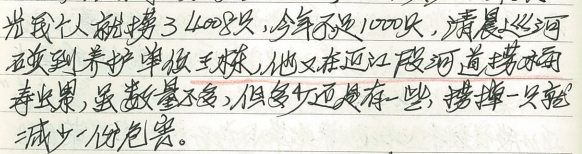 光我个人就捞了4008只，今年不足1000只，清晨巡河
碰到养护单位王栋，他又在近江段河道捞福
寿螺，虽数量不多，但多少还是有一些，捞掉一只就
减少一份危害。